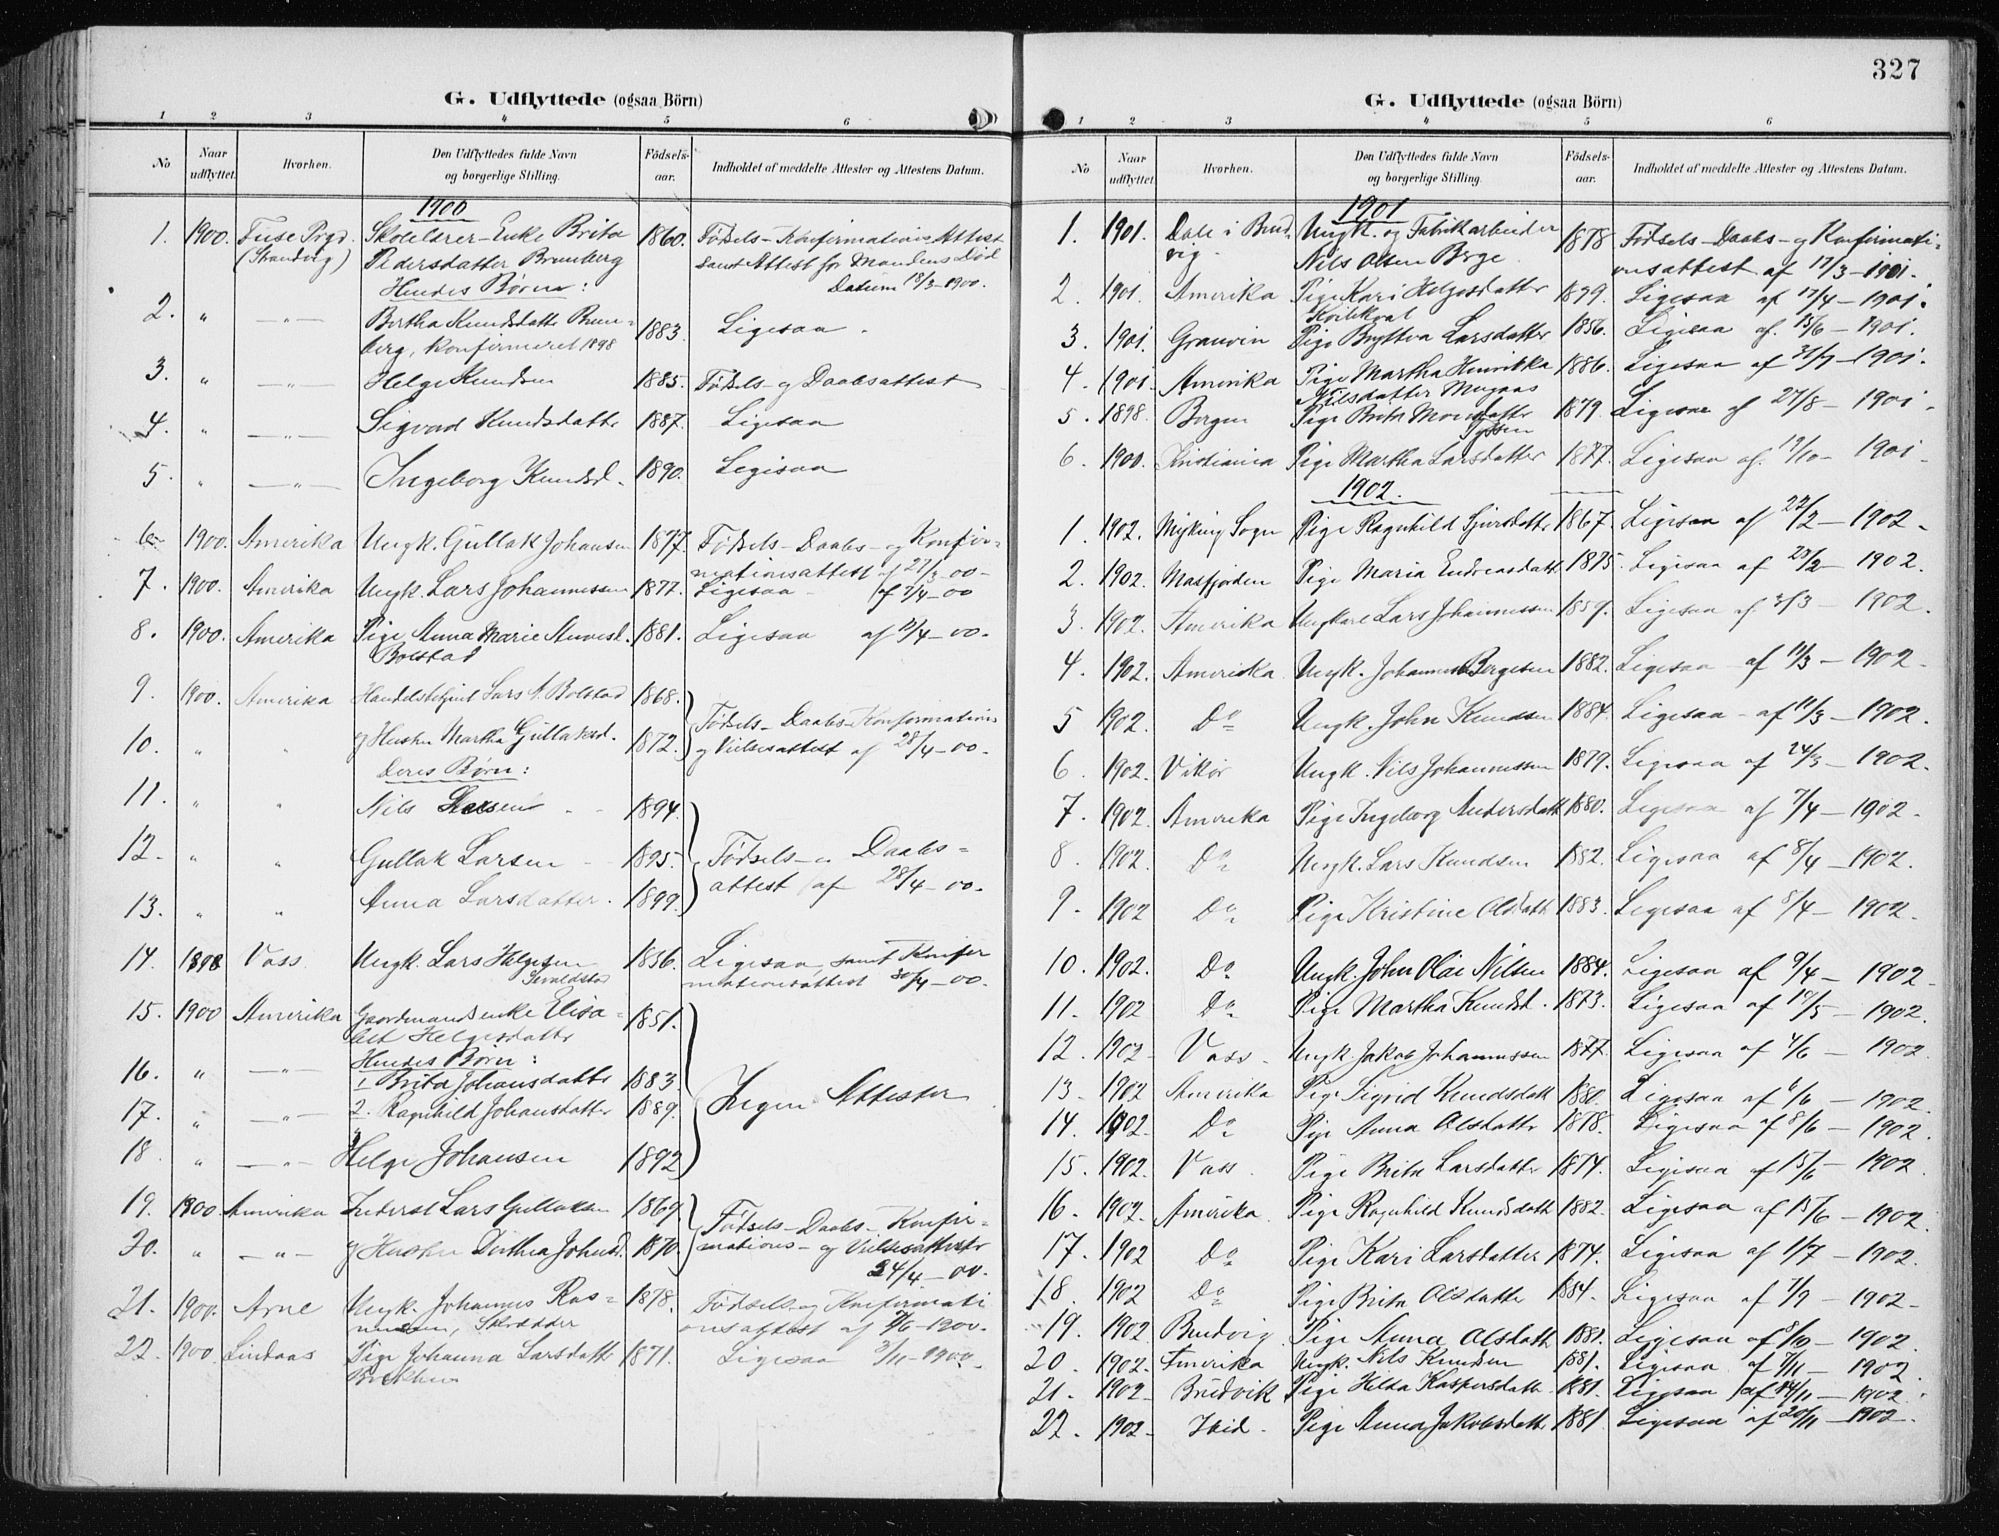 327
G. Udflyttede (ogsaa Börn)
1 2 3 4 5 6
No Naar udflyttet. Hvorhen. Den Udflyttedes fulde Navn og borgerlige Stilling. Födsels-aar. Indholdet af meddelte Attester og Attestens Datum.
1900
1. 1900. Fuse Prgd. Skolelærer-Enke Brita 1860. Fødsels- Konfirmations Attest
(Strandvig) Pedersdatter Brunberg samt Attest for Mandens Død
Hendes Børn: Datum 13/3-1900.
2. " -"- Bertha Knudsdatter Brun- 1883. Ligesaa.
berg, konfirmeret 1898
3. " -"- Helge Knudsen 1885. Fødsels- og Daabsattest
4. " -"- Sigvard Knudsdatter 1887. Ligesaa
5. " -"- Ingeborg Knudsd. 1890. Ligesaa
6. 1900. Amerika Ungk. Gullak Johansen 1877. Fødsels- Daabs- og Konfir-
mationsattest af 27/3-00-
7. 1900. Amerika Ungk. Lars Johannessen 1877. Ligesaa - af 7/4-00
8. 1900. Amerika Pige Anna Marie Anvesd. 1881. Ligesaa af 17/4-00.
Bolstad
9. 1900. Amerika Handelsbetjent Lars N. Bolstad 1868. Fødsels- Daabs-Konfirmations
10. " " og Hustru Martha Gullaksd. 1872. og Vielsesattest af 28/4-00.
Deres Børn:
11. " " Nils Larsen 1894.
12. " " Gullak Larsen 1895. Fødsels- og Daabs-
attest af 28/4-00.
13. " " Anna Larsdatter. 1899.
14. 1898 Voss Ungk. Lars Helgesen 1856. Ligesaa, samt Konfir
mationsattest 30/4-00.
15. 1900 Amerika Gaardmandsenke Elisa- 1851.
bet Helgesdatter
Hendes Børn:
16. " -"- 1. Brita Johansdatter 1883. Ingen Attester
17. " -"- 2. Ragnhild Johansdatter 1889.
18. " -"- Helge Johansen 1892
19. 1900 Amerika Inderst Lars Gullaksen 1869. Fødsels- Daabs- Konfir-
20. " -"- og Hustru Dorthea Johnsd. 1870. mations- og Vielsesattester
24/4-00.
21. 1900. Arne Ungk. Johannes Ras- 1878. Fødsels- og Konfirmati
mussen, Skrædder onsattest af 7/6-1900.
22. 1900 Lindaas Pige Johanna Larsdatter 1871. Ligesaa 3/11-1900.
G. Udflyttede (ogsaa Börn)
1 2 3 4 5 6
No Naar udflyttet Hvorhen. Den Udflyttedes fulde Navn og borgerlige Stilling. Födsels-aar. Indholdet af meddelte Attester og Attestens Datum.
1901
1. 1901. Dale i Brud- Ungk. og Fabrikarbeider 1878 Fødsels- Daabs- og Konfirmati-
vig. Nils Olsen Berge onsattest af 17/3-1901.
2. 1901. Amerika Pige Kari Helgesdatter 1879. Ligesaa af 17/4-1901.
3. 1901. Granvin Pige Bryttva Larsdatter 1856. Ligesaa af. 15/6-1901.
4. 1901. Amerika Pige Martha Henrikka 1886. Ligesaa af 31/7-1901.
Nilsdatter Mugaas
5. 1898. Bergen Pige Brita Monsdatter 1879. Ligesaa af 27/8-1901.
6. 1900. Kristiania Pige Martha Larsdatter 1877. Ligesaa af. 19/10-1901
1902.
1. 1902. Myking Sogn Pige Ragnhild Sjursdatter 1867. Ligesaa af 22/2-1902.
2. 1902. Masfjorden Pige Maria Endreasdatt. 1875. Ligesaa af 23/2-1902.
3. 1902. Amerika Ungkarl Lars Johannessen 1859. Ligesaa af 3/3-1902.
4. 1902. Amerika Ungk. Johannes Børgesen 1882. Ligesaa af 11/3-1902.
5 1902. Do Ungk. John Knudsen 1884. Ligesaa af 11/3-1902.
6. 1902. Vikör Ungk. Nils Johannessen 1879. Ligesaa af 24/3-1902.
7. 1902. Amerika Pige Ingeborg Andersdatt. 1880. Ligesaa af 7/4-1902.
8. 1902. Do Ungk. Lars Knudsen 1882. Ligesaa af 8/4-1902.
9. 1902 Do Pige Kristine Olsdatt. 1883. Ligesaa af 8/4-1902.
10. 1902. Do Ungk. John Olai Nilsen 1884. Ligesaa af 9/4-1902.
11. 1902 Do Pige Martha Knudsd. 1873. Ligesaa af 10/5-1902.
12. 1902- Voss. Ungk. Jakob Johannessen 1877. Ligesaa af 4/6-1902
13. 1902 Amerika Pige Sigrid Knudsdatt 1880. Ligesaa af 6/6-1902.
14. 1902. Do Pige Anna Olsdatter 1878. Ligesaa af 8/6-1902.
15. 1902. Voss. Pige Brita Larsdatter 1874. Ligesaa af 15/6-1902
16. 1902. Amerika. Pige Ragnhild Knudsdatt 1882. Ligesaa af 15/6-1902.
17. 1902 Do Pige Kari Larsdatter 1874. Ligesaa af 1/7-1902.
18. 1902 Do Pige Brita Olsdatter 1884. Ligesaa af 7/9-1902-
19. 1902 Brudvig Pige Anna Olsdatt. 1881. Ligesaa af 8/10-1902
20. 1902. Amerika Ungk. Nils Knudsen 1881. Ligesaa af 7/11-1902.
21. 1902- Brudvik Pige Helda Kaspersdatt. 1881. Ligesaa af 14/11-1902.
22. 1902- Ibid. Pige Anna Jakobsdatt. 1881. Ligesaa af 20/11-1902.